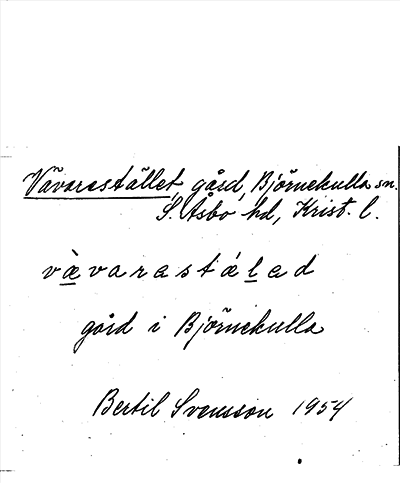 Vävarestället, gård, Björnekulla sn.
S. Åsbo hd, Krist. l.
væ̀varastáled
gård i Björnekulla
Bertil Svensson 1954